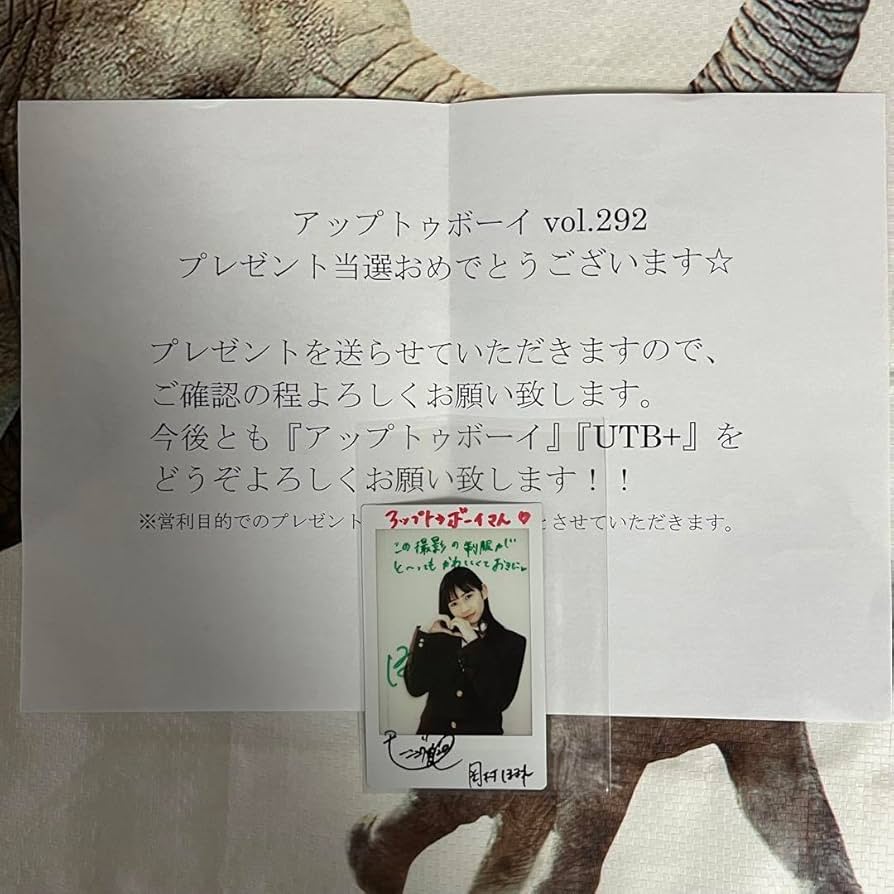 アップトゥボーイ vol.292
プレゼント当選おめでとうございます☆
プレゼントを送らせていただきますので、
ご確認の程よろしくお願い致します。
今後とも『アップトゥボーイ』『UTB+』を
どうぞよろしくお願い致します！！
※営利目的でのプレゼント
とさせていただきます。
アップトゥボーイさん♡
この撮影の制服が
と〜ってもかわいくて
岡村ほまれ